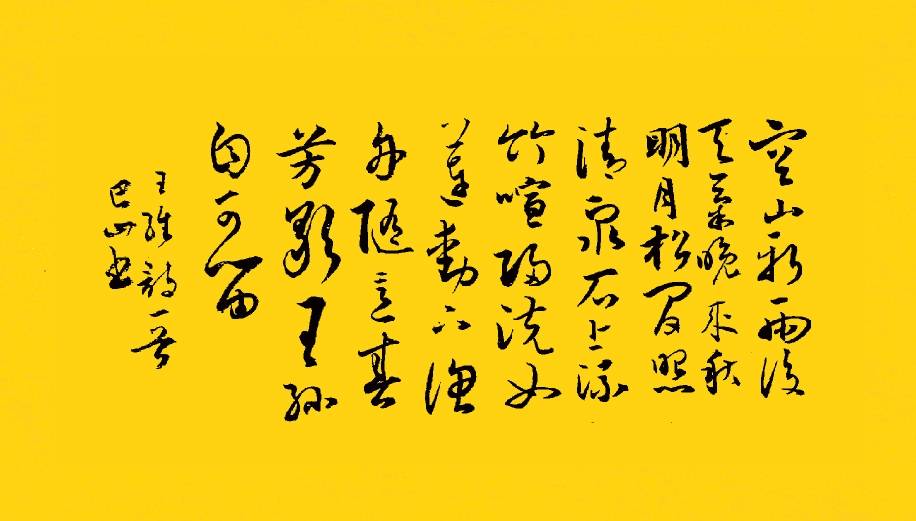 空山新雨後
天氣晚来秋
明月松间照
清泉石上流
竹喧歸浣女
蓮動下漁
舟随意春
芳歇王孫
自可留
王維詩一首
巴山书